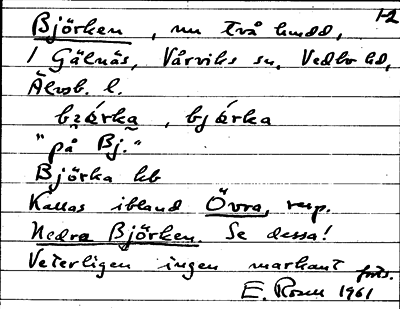 1-2
Björken, nu två hmdd,
i Gälnäs, Vårviks sn, Vedbo hd,
Älvsb. l.
bɜárka, bjárka
"på Bj."
Björka hb
Kallas ibland Övra, resp.
Nedra Björken. Se dessa!
Veterligen ingen markant forts.
E. Rosen 1961